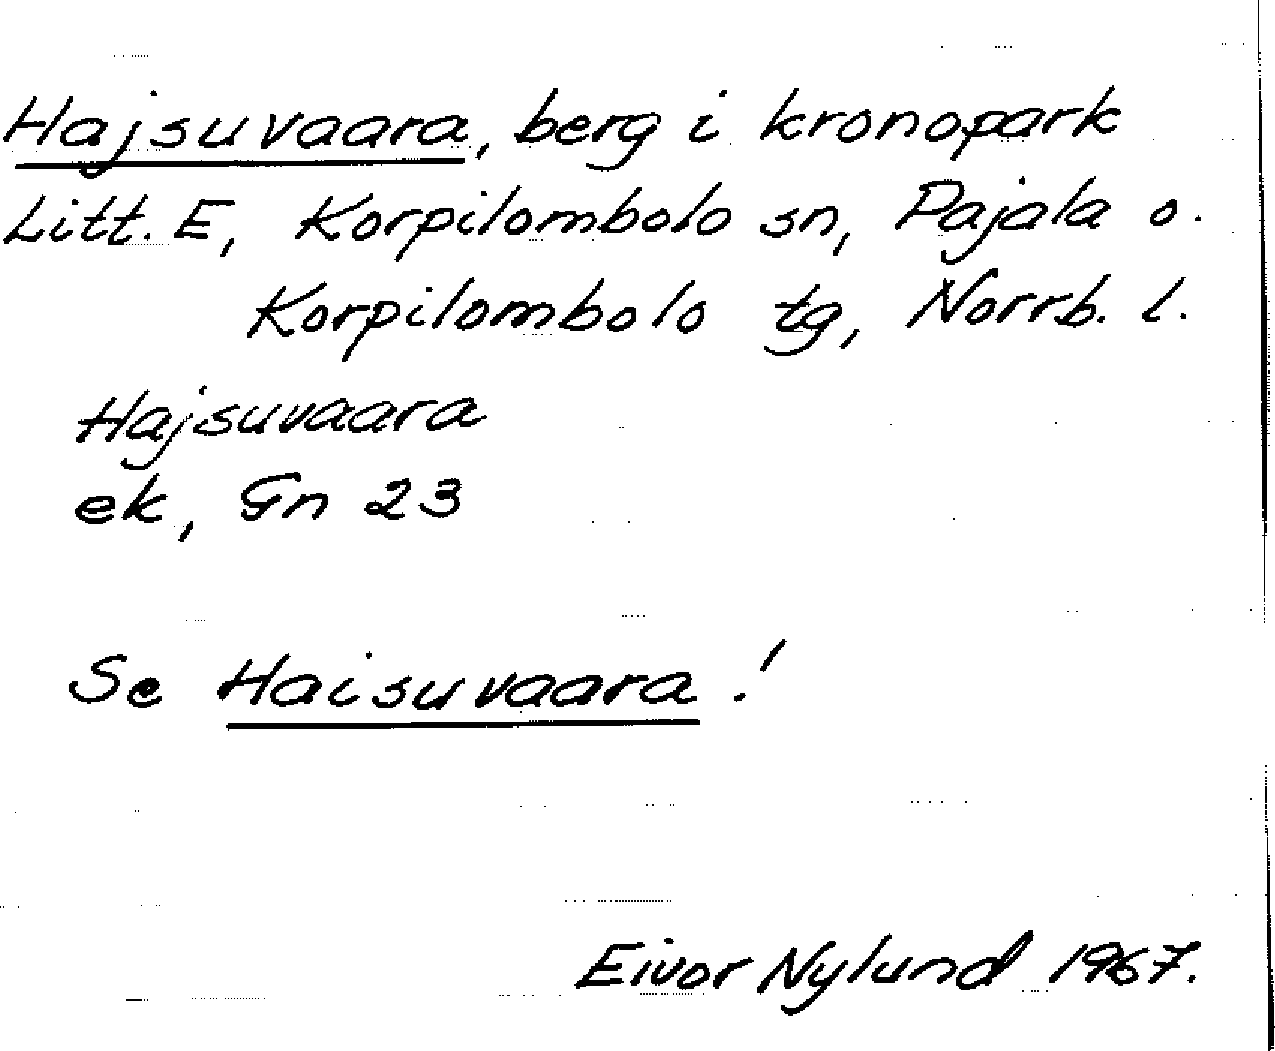 Hajsuvaara, berg i kronopark
Litt. E, Korpilombolo sn, Pajala o.
Korpilombolo tg, Norrb. l.
Hajsuvaara
ek, Gn 23
Se Haisuvaara!
Eivor Nylund 1967.